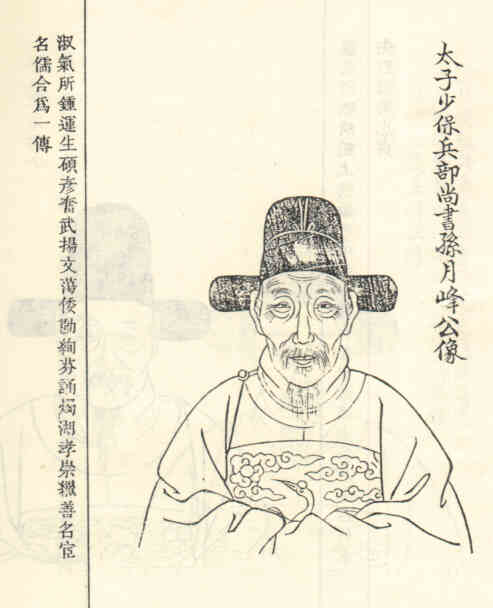 太子少保兵部尚書孫月峰公像
淑氣所鍾運生碩彥奮武揚文蕩倭勘狥芬誦燭湖孝崇善名宦
名儒合爲一傳